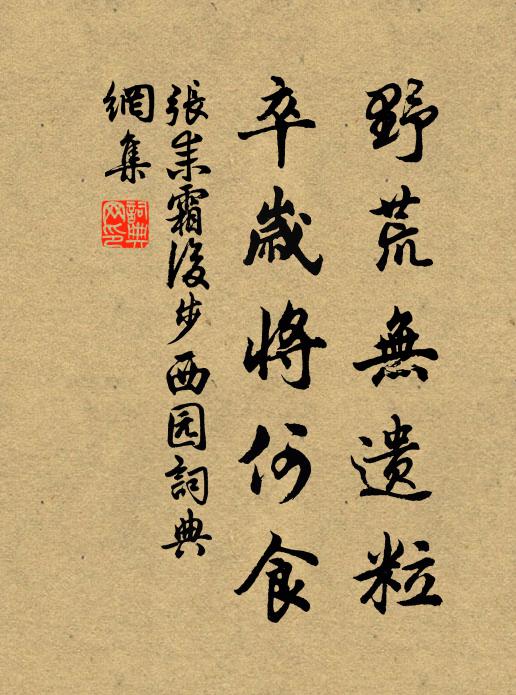 野荒無遺粒
卒歲將何食
張耒霜後步西园詞典
網集
詞典
网印